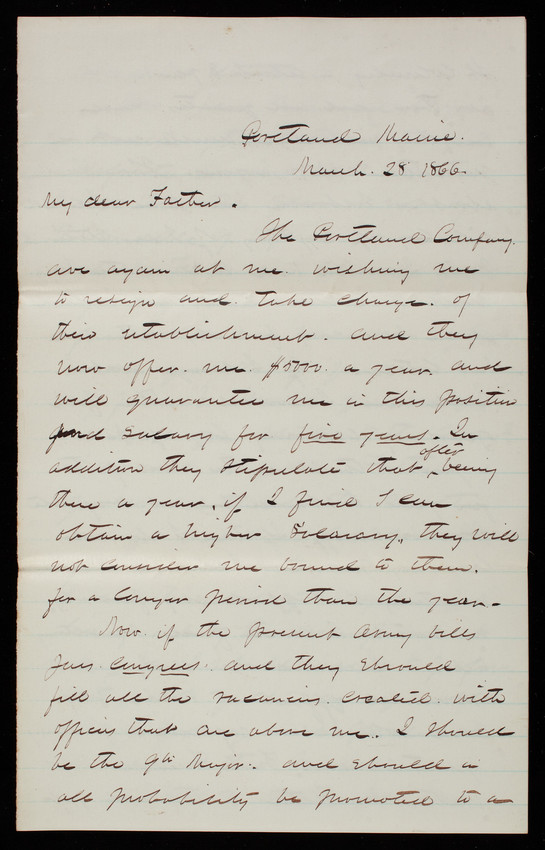 Portland Maine.
March. 28 1866.
My dear Father.
The Portland Company.
are again at me. wishing me
to resign and. take charge. of
their establishment. and they
now offer. me. $5000. a year. and
will guarantee me in this position
and salary for five years. In
addition they stipulate that after being
there a year, if I find I can
obtain a higher salary, they will
not consider me bound to them.
for a longer period than the year.-
Now. if the present Army bills
pass Congress. and they should
fill all the vacancies. created. with
officers that are above me. I should
be the 9th Major. and should in
all probability be promoted to a